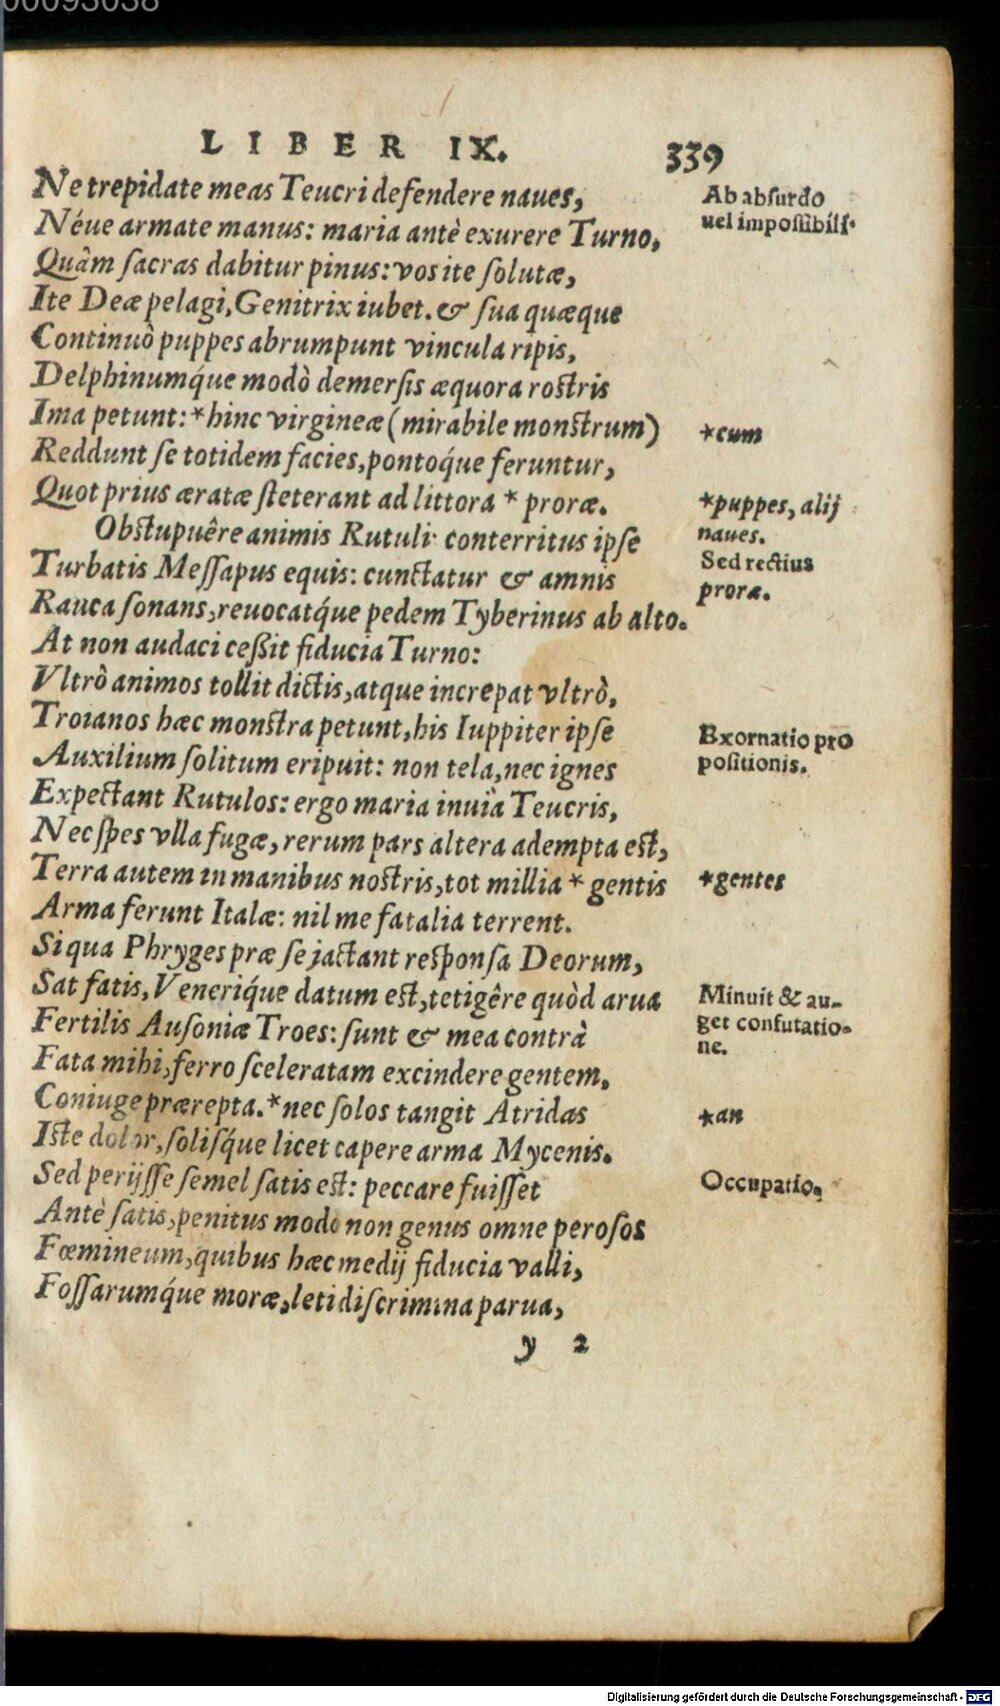 00093038
LIBER IX. 339
Ne trepidate meas Teucri defendere naues,
Néue armate manus: maria antè exurere Turno,
Quàm sacras dabitur pinus: vos ite solutæ,
Ite Deæ pelagi, Genitrix iubet. & sua quæque
Continuò puppes abrumpunt vincula ripis,
Delphinumq́ue modò demersis æquora rostris
Ima petunt: *hinc virgineæ (mirabile monstrum)
Reddunt se totidem facies, pontoq́ue feruntur,
Quot prius æratæ steterant ad littora * proræ.
Obstupuêre animis Rutuli: conterritus ipse
Turbatis Messapus equis: cunctatur & amnis
Rauca sonans, reuocatq́ue pedem Tyberinus ab alto.
At non audaci ceßit fiducia Turno:
Vltrò animos tollit dictis, atque increpat vltrò,
Troianos hæc monstra petunt, his Iuppiter ipse
Auxilium solitum eripuit: non tela, nec ignes
Expectant Rutulos: ergo maria inuia Teucris,
Nec spes vlla fugæ, rerum pars altera adempta est,
Terra autem in manibus nostris, tot millia * gentis
Arma ferunt Italæ: nil me fatalia terrent.
Si qua Phryges præ se jactant responsa Deorum,
Sat fatis, Veneriq́ue datum est, tetigêre quòd arua
Fertilis Ausoniæ Troes: sunt & mea contrà
Fata mihi, ferro sceleratam excindere gentem,
Coniuge prærepta. *nec solos tangit Atridas
Iste dolor, solisq́ue licet capere arma Mycenis.
Sed perijsse semel satis est: peccare fuisset
Antè satis, penitus modo non genus omne perosos
Fœmineum, quibus hæc medij fiducia valli,
Fossarumq́ue moræ, leti discrimina parua,
y 2
Ab absurdo
uel impossibili.
*cum
*puppes, alij
naues.
Sed rectius
proræ.
Exornatio pro
positionis.
*gentes
Minuit & au-
get confutatio-
ne.
*an
Occupatio.
Digitalisierung gefördert durch die Deutsche Forschungsgemeinschaft - DFG